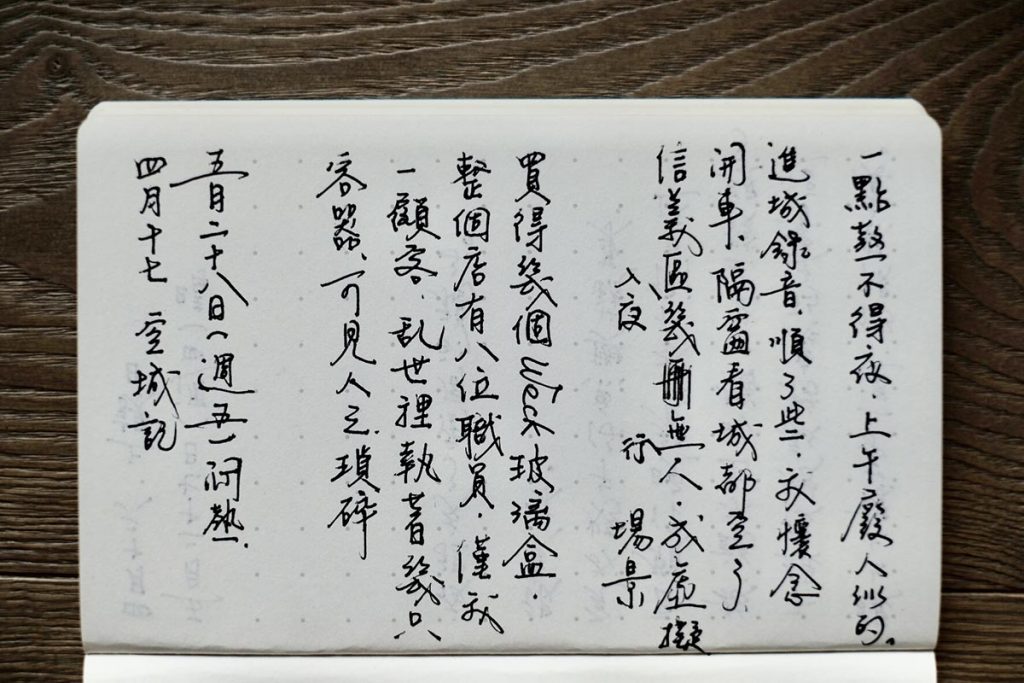 一點熬不得夜.上午廢人似的。
進城錄音.順了些.我懷念
開車、隔窗看城都空了、
信義區幾無人.成虛擬
入夜 行 場景
買得幾個Weck玻璃盒.
整個店有八位職員.僅我
一顧客.乱世裡執著幾只
容器、可見人之瑣碎
五月二十八日(週五)悶熱.
四月十七 空城記